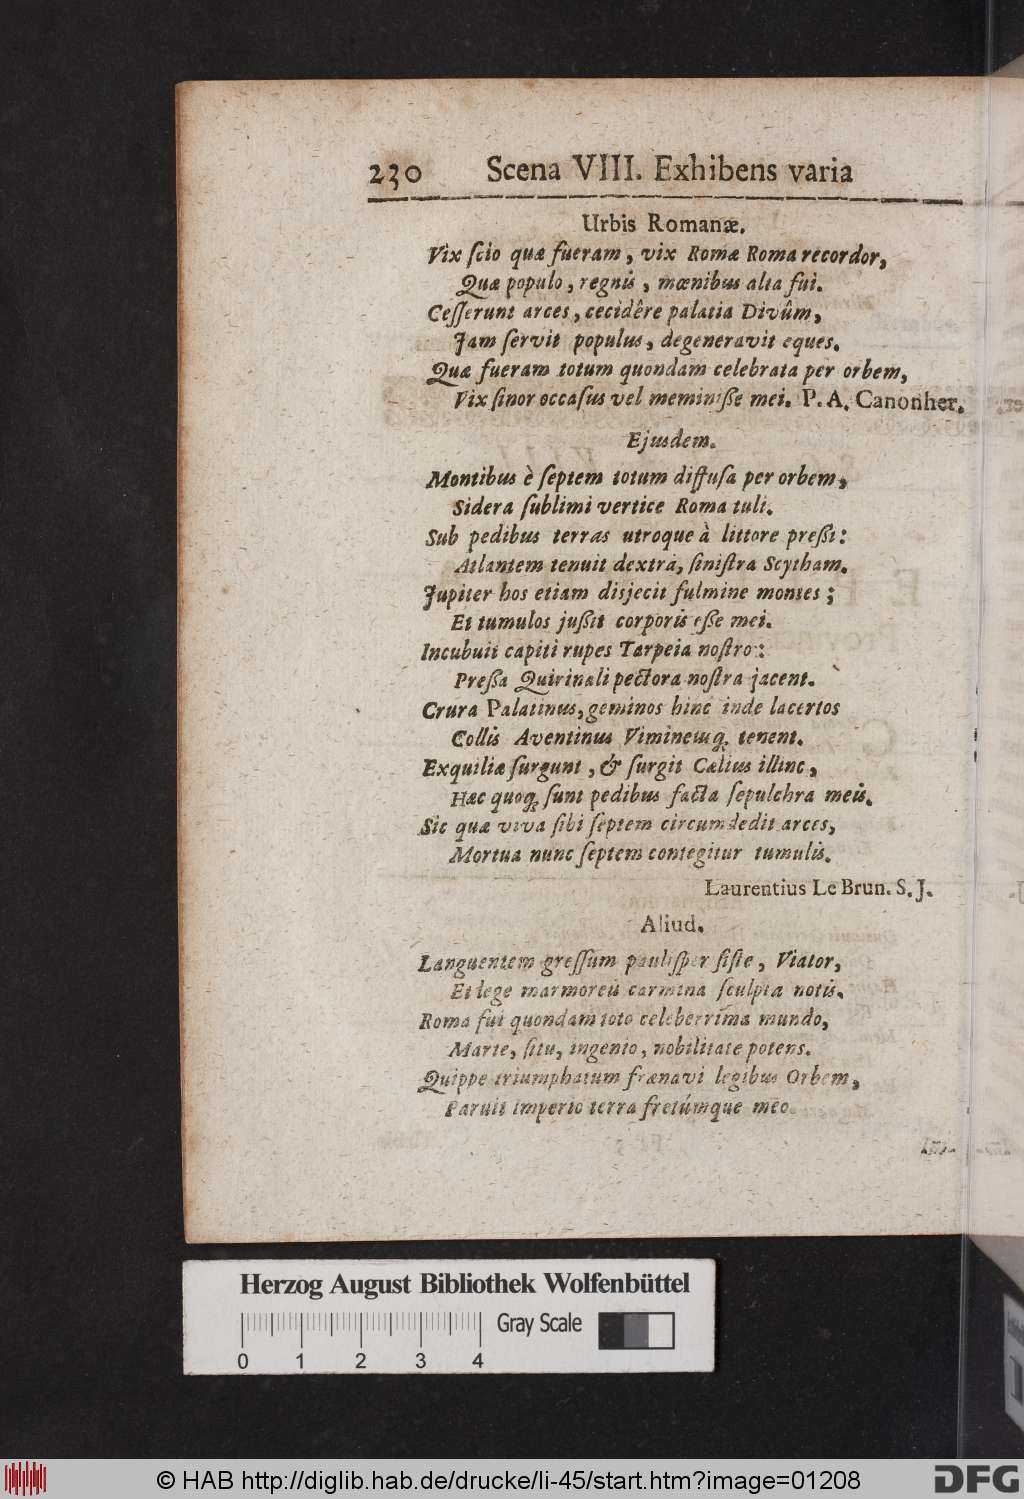 230 Scena VIII. Exhibens varia
Urbis Romanæ.
Vix ſcio quæ fueram, vix Romæ Roma recordor,
Quæ populo, regnis, mœnibus alta fui.
Ceſſerunt arces, cecidêre palatia Divûm,
Jam ſervit populus, degeneravit eques.
Quæ fueram totum quondam celebrata per orbem,
Vix ſinor occaſus vel meminiſſe mei. P. A. Canonher.
Ejusdem.
Montibus è ſeptem totum diffuſa per orbem,
Sidera ſublimi vertice Roma tuli.
Sub pedibus terras utroque à littore preßi:
Atlantem tenuit dextra, ſiniſtra Scytham.
Jupiter hos etiam disjecit fulmine montes;
Et tumulos jußit corporis eße mei.
Incubuit capiti rupes Tarpeia noſtro:
Preßa Quirinali pectora noſtra jacent.
Crura Palatinus, geminos hinc inde lacertos
Collis Aventinus Vimineuſq; tenent.
Exquiliæ ſurgunt, & ſurgit Cælius illinc,
Hæc quoq; ſunt pedibus facta ſepulchra meis.
Sic quæ viva ſibi ſeptem circumdedit arces,
Mortua nunc ſeptem contegitur tumulis.
Laurentius Le Brun. S. J.
Aliud.
Languentem greſſum pauliſper ſiſte, Viator,
Et lege marmoreis carmina ſculpta notis.
Roma fui quondam toto celeberrima mundo,
Marte, ſitu, ingenio, nobilitate potens.
Quippe triumphatum frænavi legibus Orbem,
Paruit imperio terra fretúmque meo.
Herzog August Bibliothek Wolfenbüttel
Gray Scale
0 1 2 3 4
© HAB http://diglib.hab.de/drucke/li-45/start.htm?image=01208
DFG